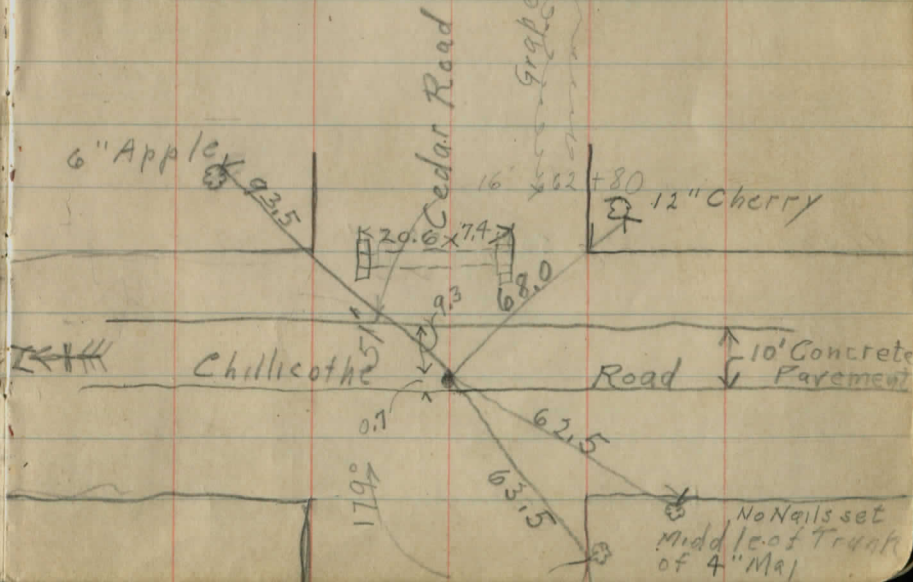 Cedar Road
Grape
6" Apple
93.5
16 +80
12" Cherry
20.6 x 7.4
68.0
9.3
51°
Chillicothe Road
10' Concrete
Pavement
0.7
62.5
179°
63.5
No Nails set
Middle of Trunk
of 4" Ma